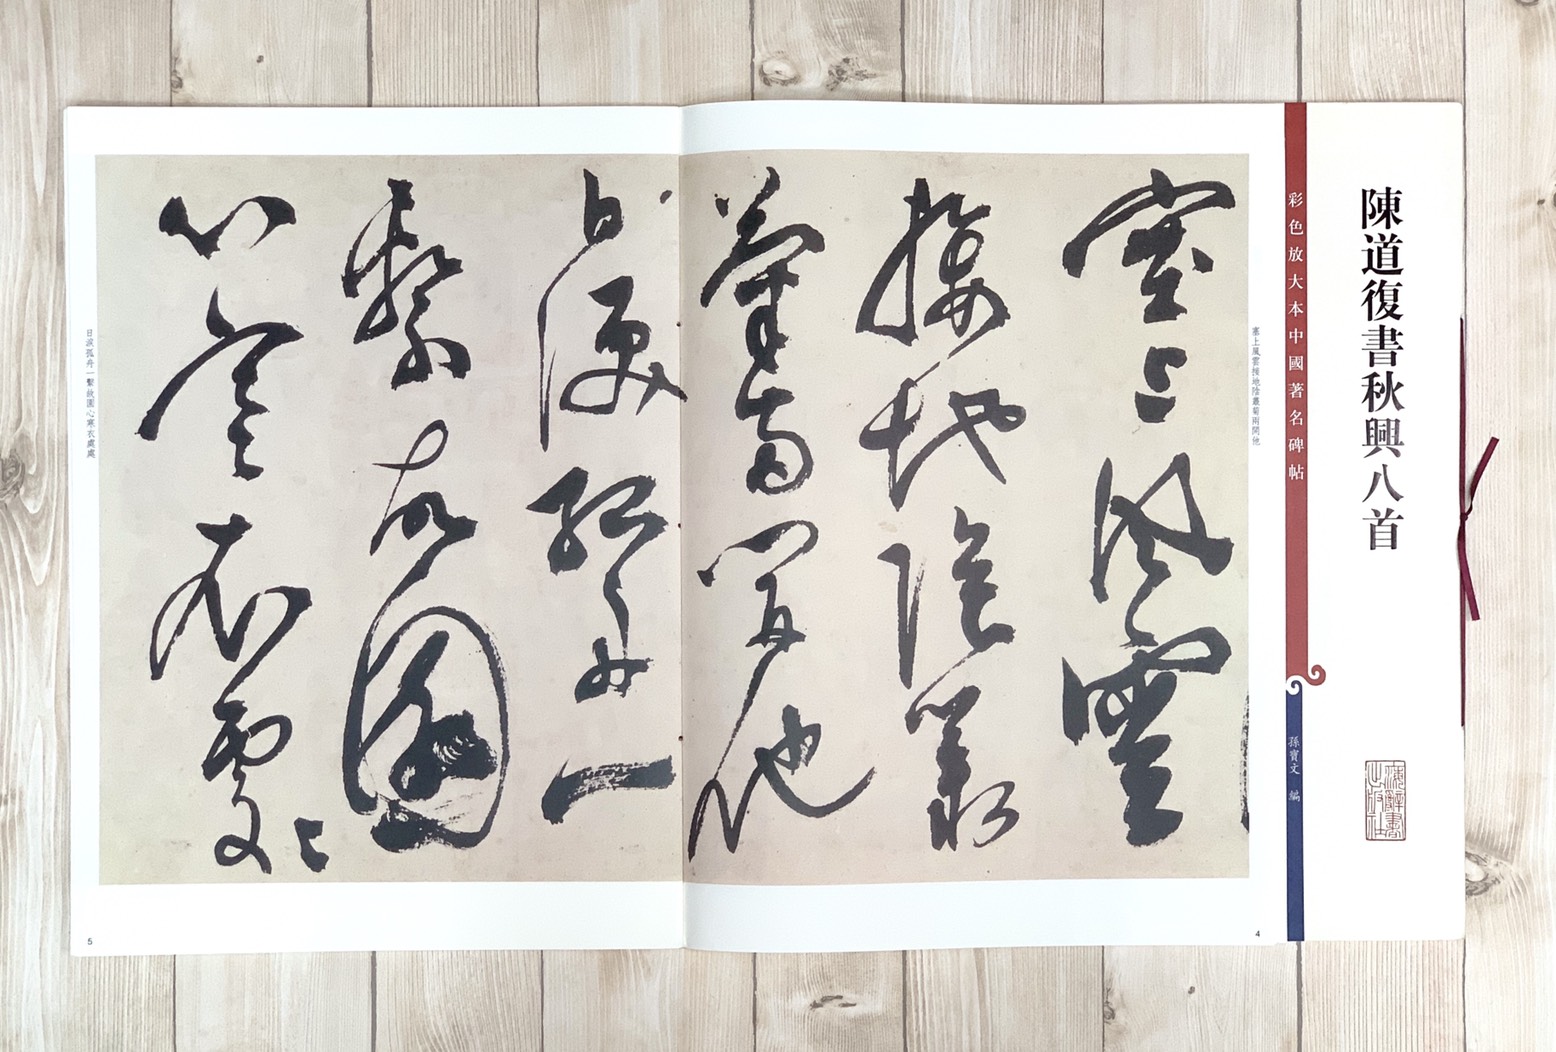 陳道復書秋興八首
上海辭書
出版社
彩色放大本中國著名碑帖
孫寶文 編
塞上風雲接地陰叢菊兩開他
塞上風雲
接地陰叢
菊兩開他
日淚孤舟一
繫故園
心寒衣處〻
日淚孤舟一繫故園心寒衣處處
4
5